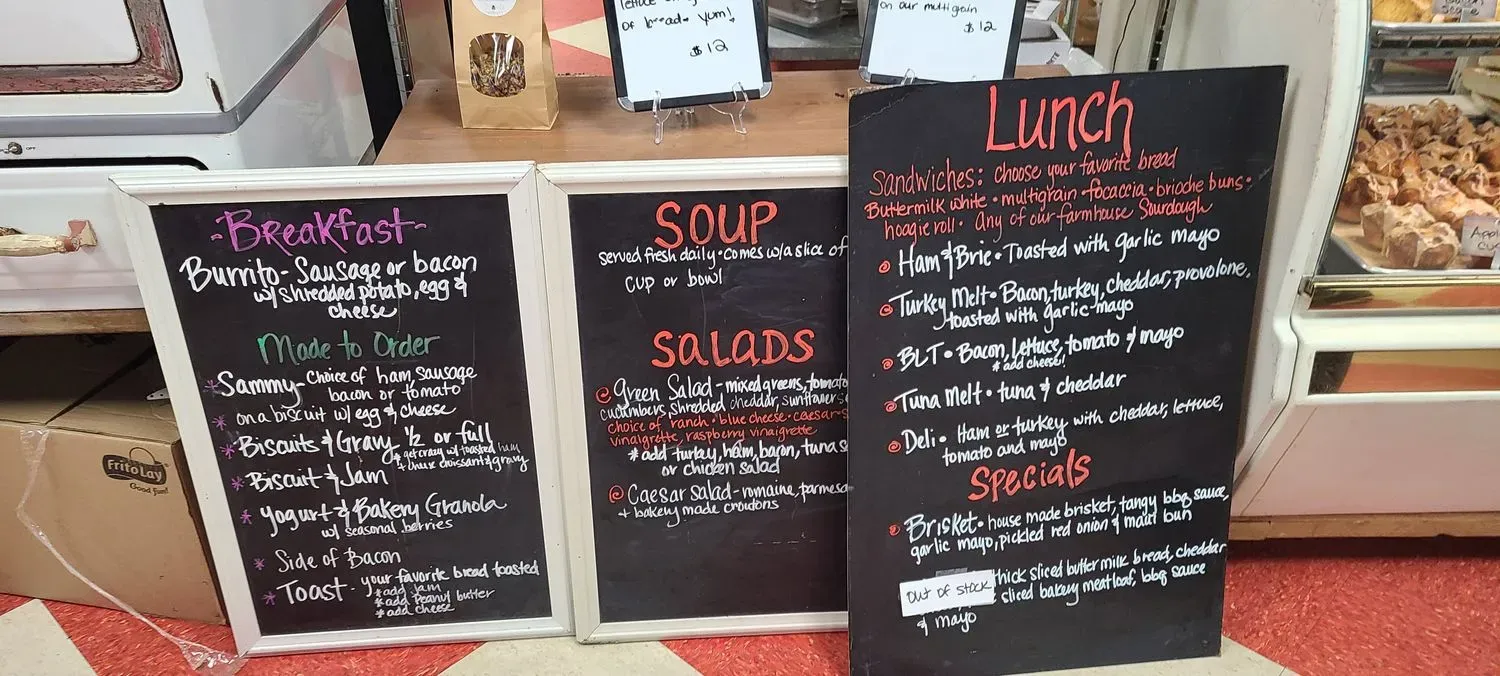 of bread. yum!
$12
on our multigrain
$12
OFF
-Breakfast-
Burrito- Sausage or bacon
w/ shredded potato, egg &
cheese
Made to Order
*Sammy- Choice of ham, sausage
bacon or tomato
* on a biscuit w/ egg & cheese
*Biscuits & Gravy ½ or full
* get crazy w/ toasted ham
& croissant & gravy
*Biscuit & Jam
* Yogurt & Bakery Granola
w/ seasonal berries
* Side of Bacon
* Toast - your favorite bread toasted
*add Jam
*add Peanut butter
*add cheese
FritoLay
Good fun!
SOUP
served fresh daily • comes w/a slice of
cup or bowl
SALADS
Green Salad - mixed greens, tomato
cucumbers, shredded cheddar, sunflower s
choice of ranch • blue cheese • caesar •
vinaigrette, raspberry vinaigrette
*add turkey, ham, bacon, tuna s
or chicken salad
Caesar Salad - romaine, parmesa
+ bakery made croutons
Lunch
Sandwiches: choose your favorite bread
Buttermilk white • multigrain • focaccia • brioche buns •
hoagie roll • Any of our farmhouse Sourdough
Ham & Brie • Toasted with garlic mayo
Turkey Melt • Bacon, turkey, cheddar, provolone,
toasted with garlic mayo
BLT • Bacon, lettuce, tomato & mayo
*add cheese!
Tuna Melt • tuna & cheddar
Deli • Ham or turkey with cheddar, lettuce,
tomato and mayo
Specials
Brisket • house made brisket, tangy bbq sauce,
garlic mayo, pickled red onion & maui bun
thick sliced buttermilk bread, cheddar
OUT OF STOCK sliced bakery meatloaf, bbq sauce
& mayo